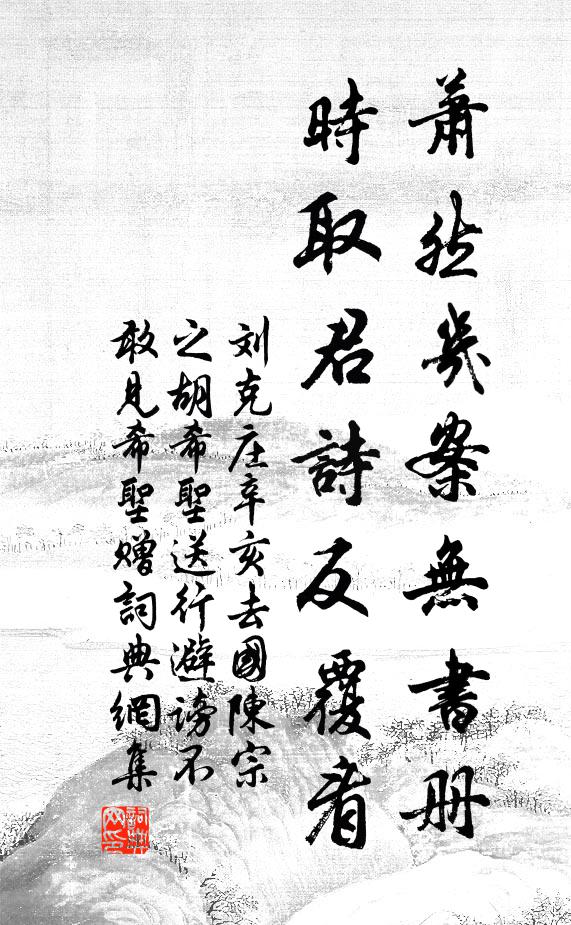 蕭然幾案無書冊
時取君詩反覆看
刘克庄辛亥去國陳宗
之胡希聖送行避謗不
敢見希聖贈詞典網集
詞典網印